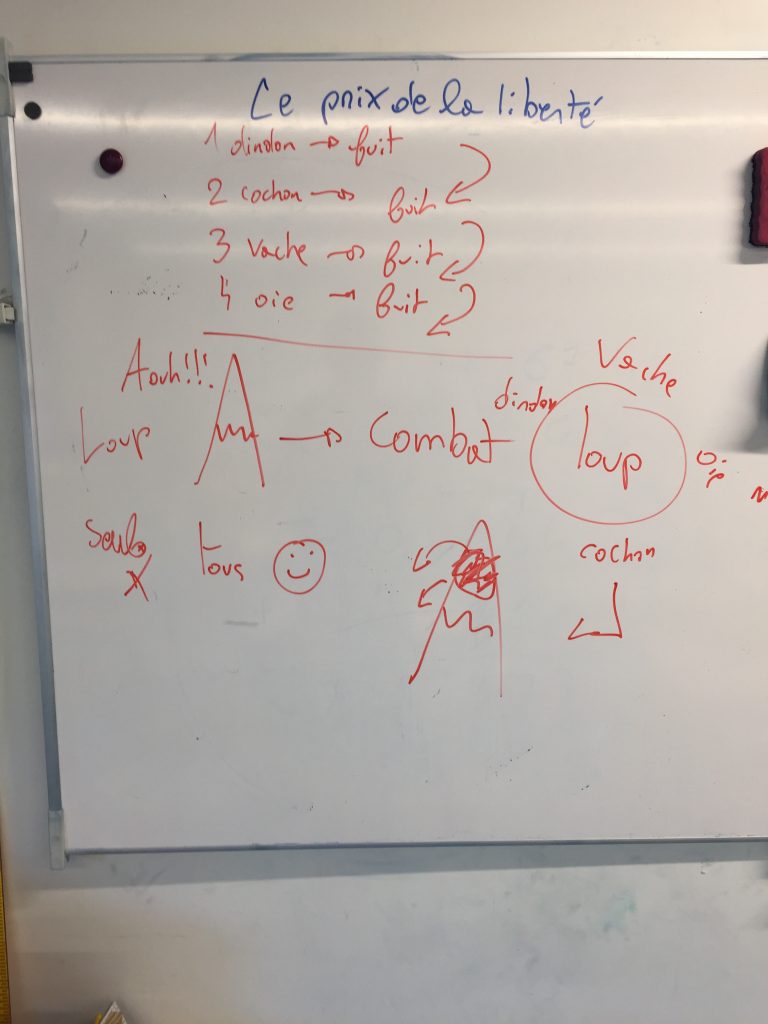 Le prix de la liberté
1 dindon → fuit
2 cochon → fuit
3 vache → fuit
4 oie → fuit
Aouh!!!
Vache
dindon
Loup → Combat loup
seul
tous
cochon